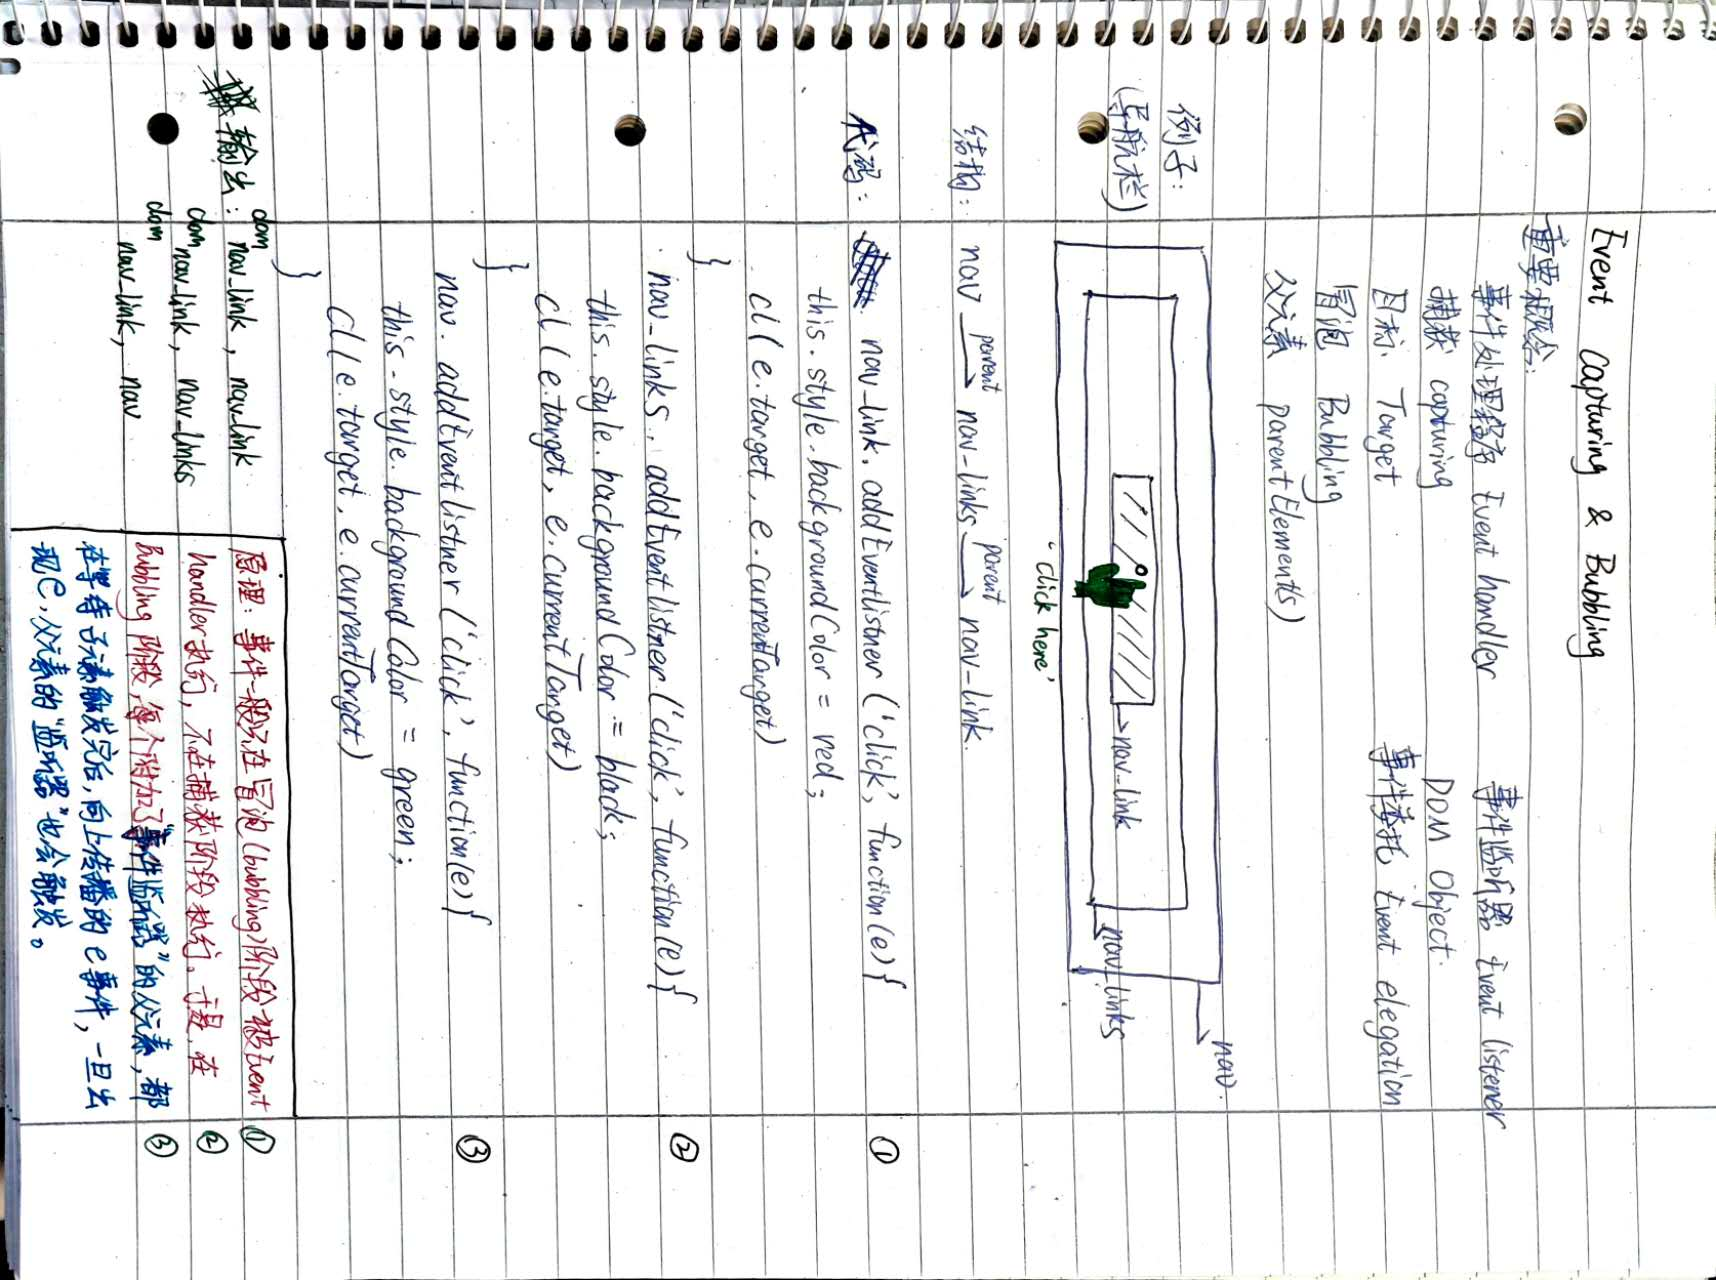 Event Capturing & Bubbling
重要概念:
事件处理程序 Event handler 事件监听器 Event listener
捕获 capturing DOM Object.
目标 Target 事件委托 Event elegation
冒泡 Bubbling
父元素 parentElement(s)
例子:
(导航栏)
nav.
nav_links
nav_link
'click here'
结构: nav parent nav-links parent nav-link.
代码: nav_link. addEventlistner ('click', function(e){ ①
this.style.backgroundColor = red;
cl(e.target, e.currentTarget)
}
nav_links. addEventlistner ('click', function(e){ ②
this.style.backgroundColor = black;
cl(e.target, e.currentTarget)
}
nav. addEventlistner ('click', function(e){ ③
this.style.backgroundColor = green;
cl(e.target, e.currentTarget)
}
输出: dom nav_link, nav_link ①
dom nav_link, nav_links ②
dom nav_link, nav ③
原理: 事件一般只在冒泡(bubbling)阶段被Event
handler执行, 不在捕获阶段执行. 于是, 在
Bubbling阶段, 每个附加了"事件监听器"的父元素, 都
在等待子元素触发完后, 向上传播的e事件, 一旦出
现e, 父元素的"监听器"也会触发。